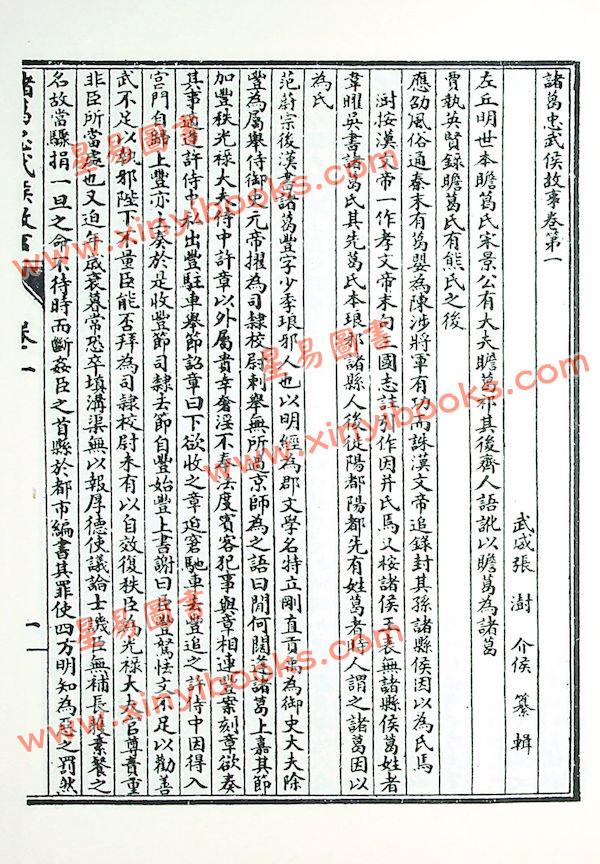 諸葛忠武侯故事卷第一
武威張澍介侯纂輯
左丘明世本瞻葛氏宋景公有大夫瞻葛祁其後齊人語訛以瞻葛為諸葛
賈執英賢錄瞻葛氏有熊氏之後
應劭風俗通秦末有葛嬰為陳涉將軍有功而誅漢文帝追錄封其孫諸縣侯因以為氏焉
澍按漢文帝一作孝文帝末句三國志註引作因并氏焉又桉諸侯王表無諸縣侯葛姓者
韋曜吳書諸葛氏其先葛氏本琅邪諸縣人後徙陽都陽都先有姓葛者時人謂之諸葛因以
為氏
范蔚宗後漢書諸葛豐字少季琅邪人也以明經為郡文學名特立剛直貢禹為御史大夫除
豐為屬舉侍御史元帝擢為司隸校尉刺舉無所過京師為之語曰閒何闊逢諸葛上嘉其節
加豐秩光祿大夫侍中許章以外屬貴幸奢淫不奉法度賓客犯事與章相連豐案劾章欲奏
其事適逢許侍中私出豐駐車舉節詔章曰下欲收之章迫窘馳車去豐追之許侍中因得入
宮門自歸上豐亦上奏於是收豐節司隸去節自豐始豐上書謝曰臣豐駑怯文不足以勸善
武不足以執邪陛下不量臣能否拜為司隸校尉未有以自效復秩臣為光祿大夫官尊責重
非臣所當處也又迫年歲衰暮常恐卒填溝渠無以報厚德使議論士譏臣無補長雁素餐之
名故當驟捐一旦之命不待時而斷姦臣之首縣於都市編書其罪使四方明知為惡之罰然
諸葛忠武侯故事
卷一
一
星易圖書
www.xinyibooks.com
星易圖書
www.xinyibooks.com
星易圖書
www.xinyibooks.com